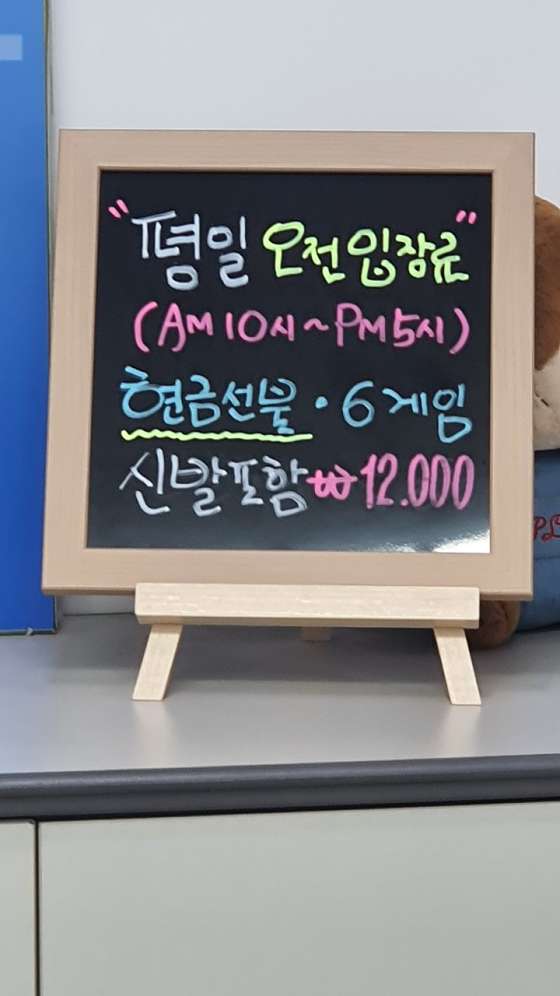 "평일 오전 입장료"
(AM 10시~PM 5시)
현금선불 · 6게임
신발포함 ₩12.000